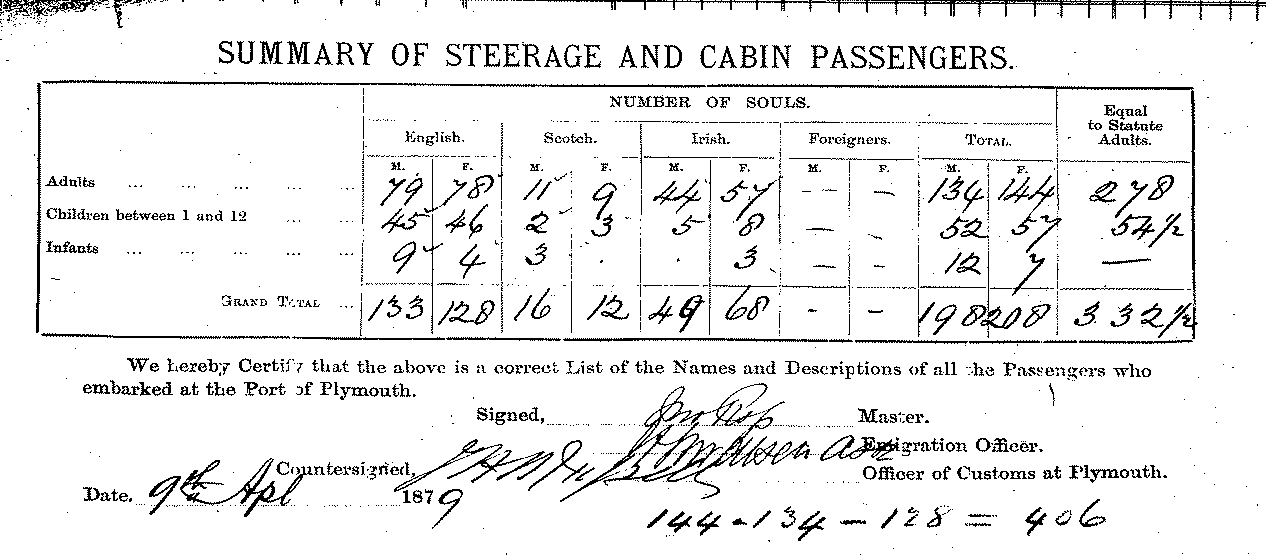 SUMMARY OF STEERAGE AND CABIN PASSENGERS.
NUMBER OF SOULS. Equal to Statute Adults.
English. Scotch. Irish. Foreigners. TOTAL.
M. F. M. F. M. F. M. F. M. F.
Adults ... ... ... ... ... 79 78 11 9 44 57 — — 134 144 278
Children between 1 and 12 ... ... 45 46 2 3 5 8 — - 52 57 54 1/2
Infants ... ... ... ... ... 9 4 3 . . 3 — — 12 7 —
GRAND TOTAL ... 133 128 16 12 49 68 - - 198 208 332 1/2
We hereby Certify that the above is a correct List of the Names and Descriptions of all the Passengers who
embarked at the Port of Plymouth.
Signed, Master.
Emigration Officer.
Countersigned, Officer of Customs at Plymouth.
Date. 9th Apl 1879
144 - 134 - 128 = 406